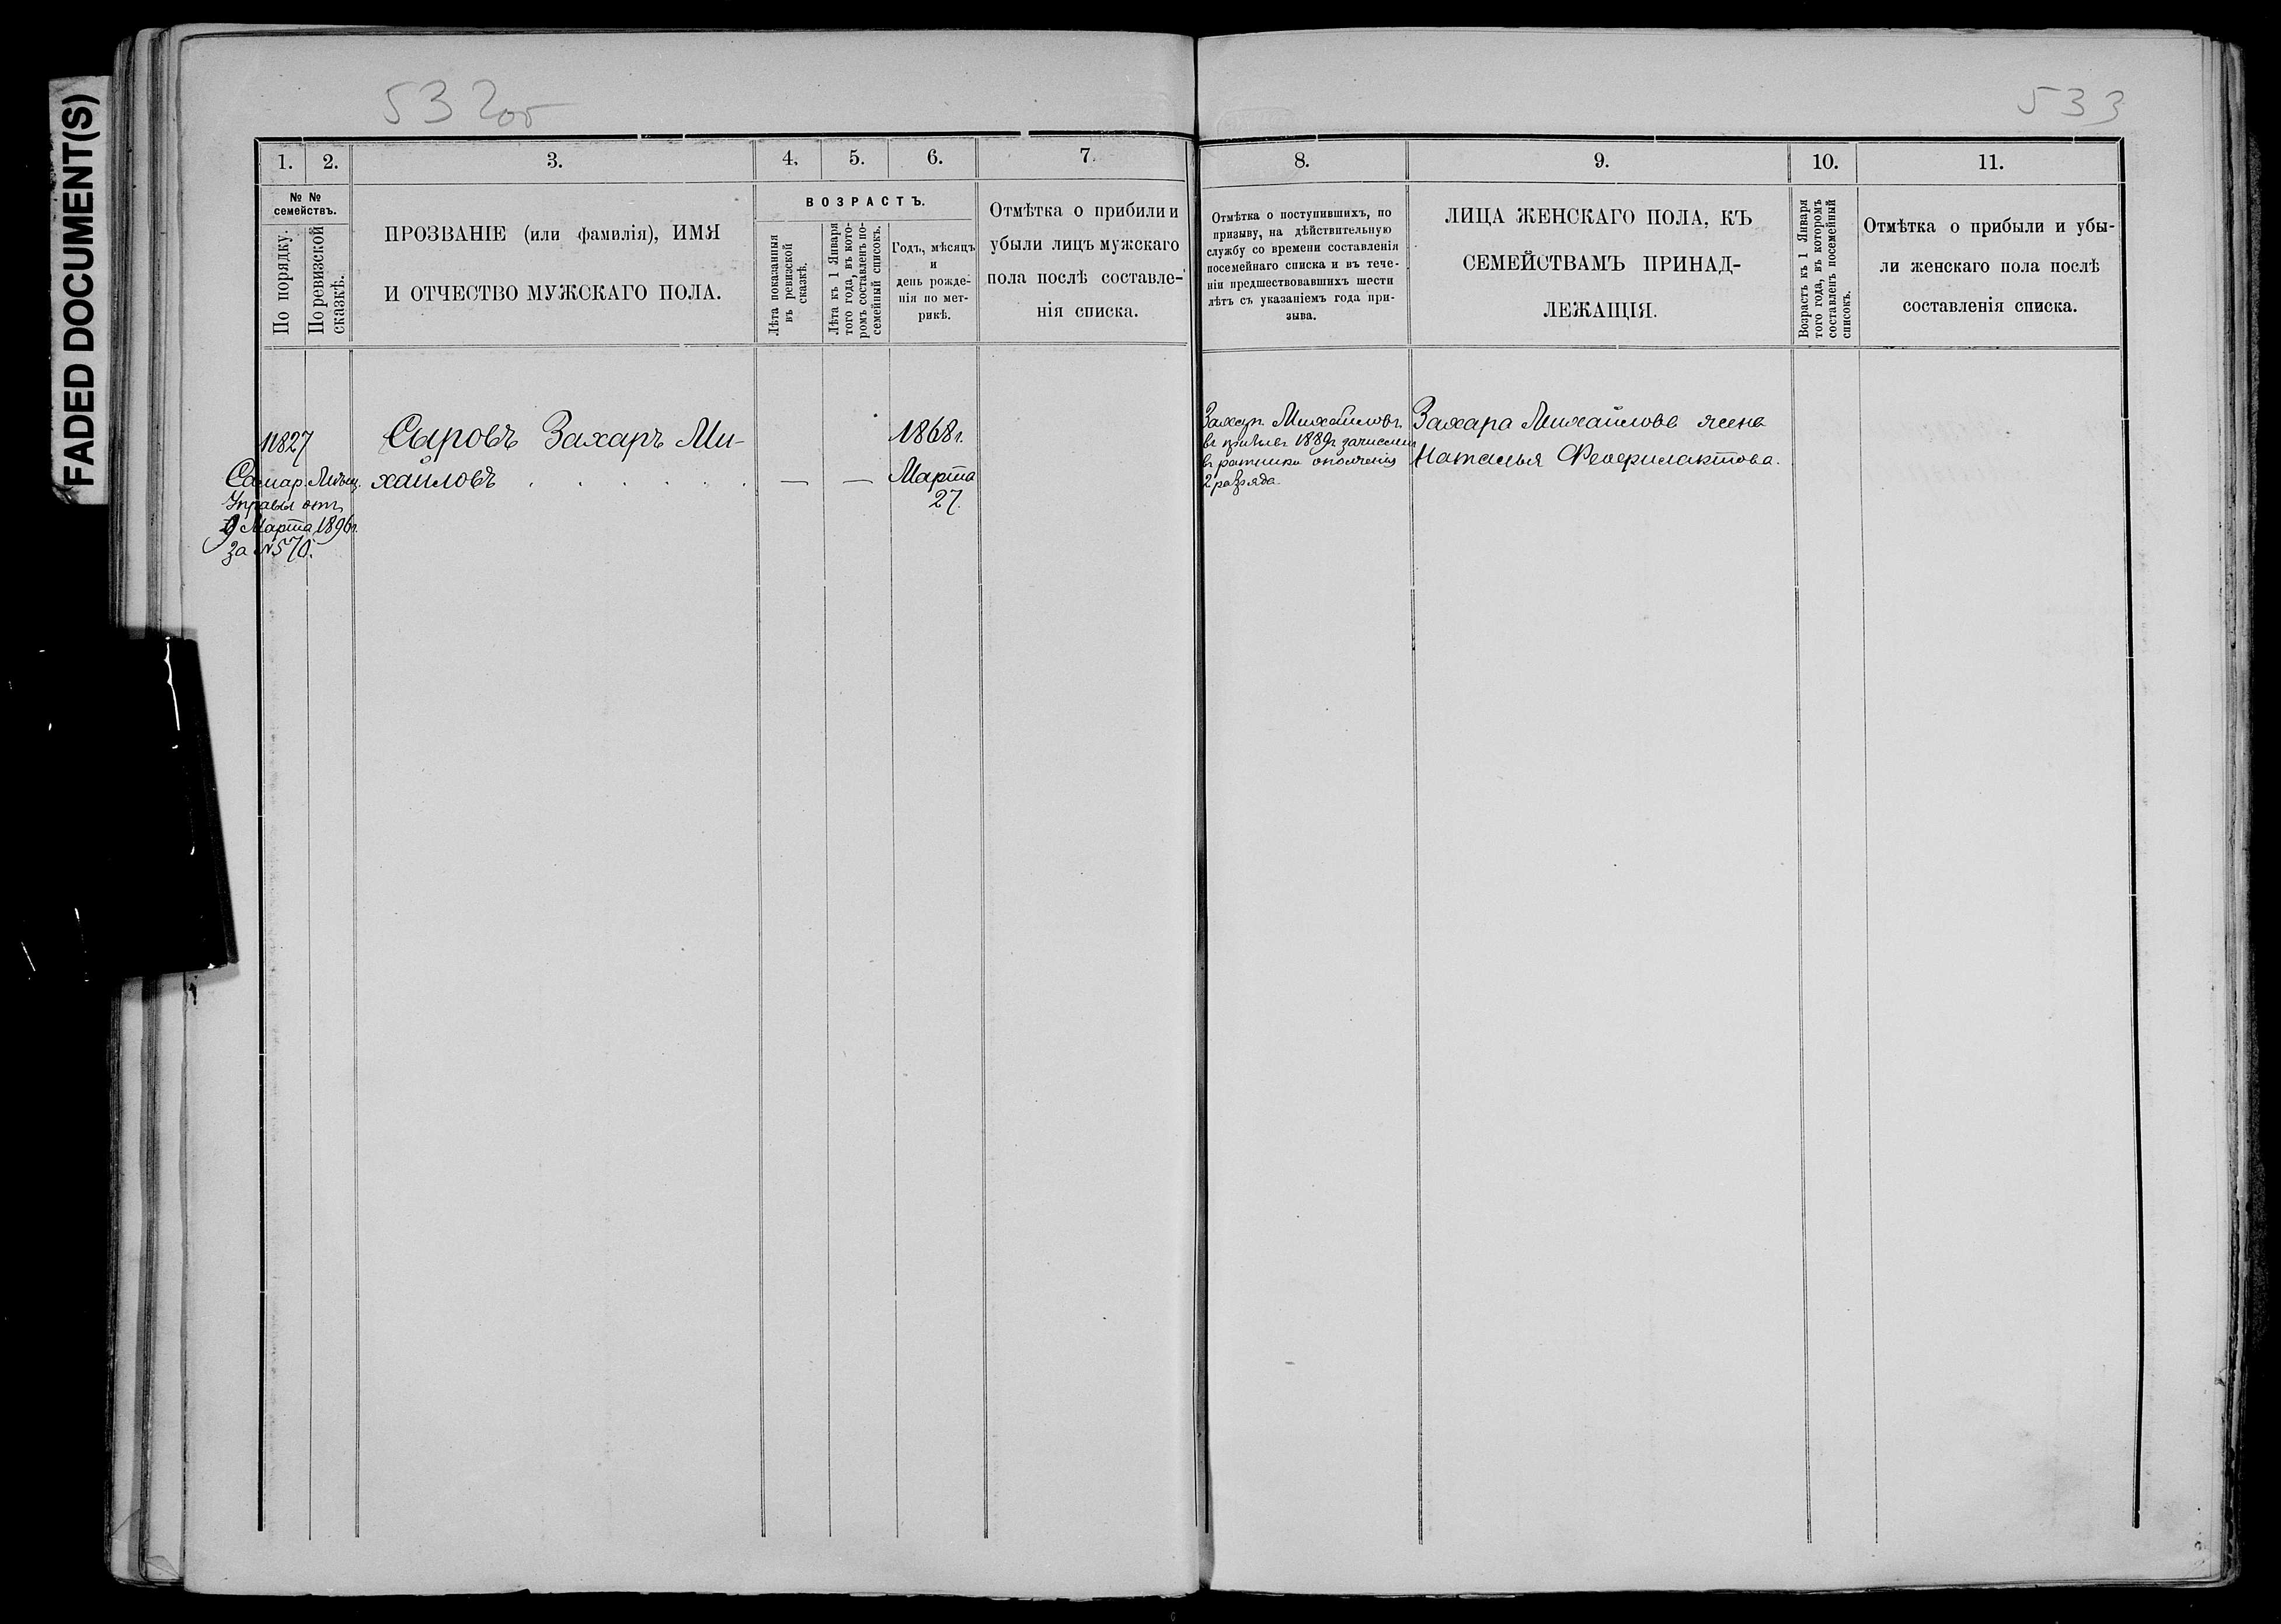 FADED DOCUMENT(S)
532об
1.
2.
3.
4.
5.
6.
7.
№ №
семействъ.
По порядку.
По ревизской
сказкѣ.
ПРОЗВАНІЕ (или фамилія), ИМЯ
И ОТЧЕСТВО МУЖСКАГО ПОЛА.
ВОЗРАСТЪ.
Лѣта показанныя
въ ревизской
сказкѣ.
Лѣта къ 1 Января
того года, въ кото-
ромъ составленъ по-
семейный списокъ.
Годъ, мѣсяцъ
и
день рожде-
нія по мет-
рикѣ.
Отмѣтка о прибыли и
убыли лицъ мужскаго
пола послѣ составле-
нія списка.
11827
Самар. Мѣщ.
Управы отъ
9 Марта 1896г.
за №570.
Сыровъ Захаръ Ми-
хайловъ . . . . . .
—
—
1868г.
Марта
27.
533
8.
9.
10.
11.
Отмѣтка о поступившихъ, по
призыву, на дѣйствительную
службу со времени составленія
посемейнаго списка и въ тече-
ніи предшествовавшихъ шести
лѣтъ съ указаніемъ года при-
зыва.
ЛИЦА ЖЕНСКАГО ПОЛА, КЪ
СЕМЕЙСТВАМЪ ПРИНАД-
ЛЕЖАЩІЯ.
Возрастъ къ 1 Января
того года, въ которомъ
составленъ посемейный
списокъ.
Отмѣтка о прибыли и убы-
ли женскаго пола послѣ
составленія списка.
Захаръ Михайловъ
въ 1889г зачисленъ
въ ратники ополченія
2 разряда.
Захара Михайлова жена
Наталья